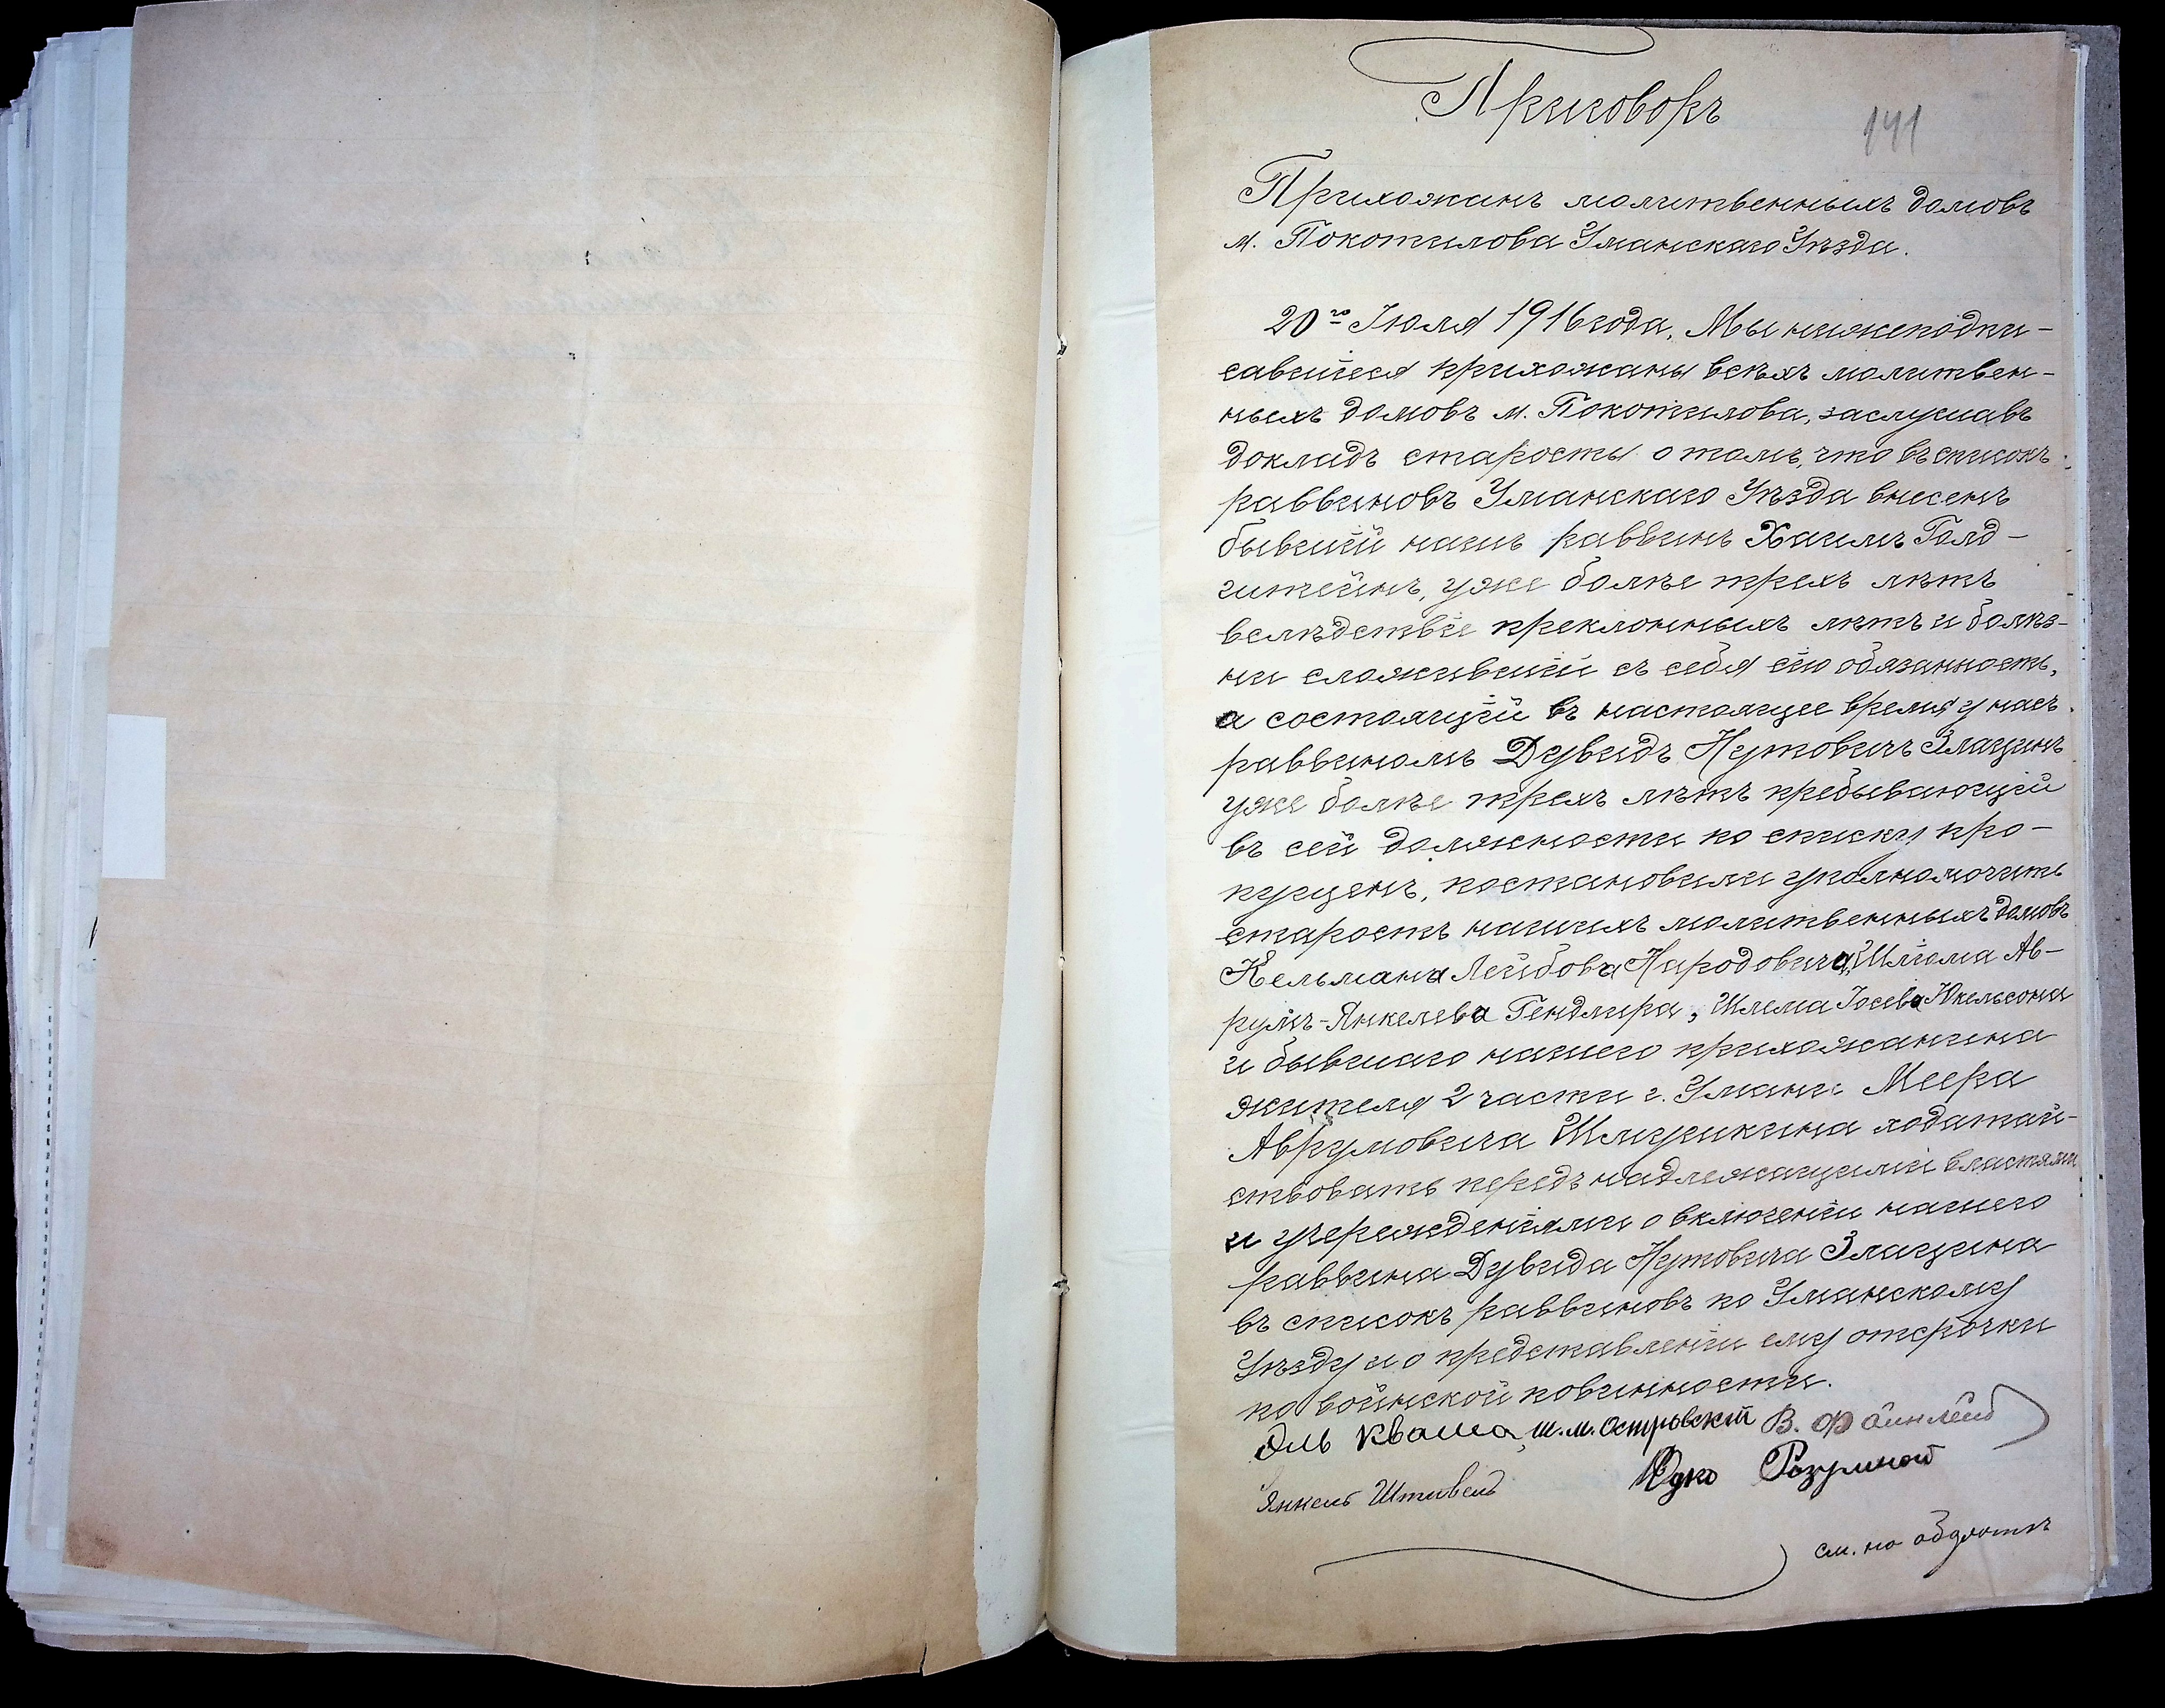 Приговоръ
141
Прихожанъ молитвенныхъ домовъ
м. Покотилова Уманскаго Уѣзда.
20го Іюля 1916 года. Мы нижеподпи-
савшіеся прихожаны всѣхъ молитвен-
ныхъ домовъ м. Покотилова, заслушавъ
докладъ старосты о томъ, что въ списокъ
раввиновъ Уманскаго Уѣзда внесенъ
бывшій нашъ раввинъ Хаимъ Голд-
штейнъ, уже болѣе трехъ лѣтъ
вслѣдствіе преклонныхъ лѣтъ и болѣз-
ни сложившій съ себя сію обязанность,
а состоящій въ настоящее время у насъ
раввиномъ Дувидъ Нутовичъ Злащинъ
уже болѣе трехъ лѣтъ пребывающій
въ сей должности по списку про-
пущенъ, постановили уполномочить
старостъ нашихъ молитвенныхъ домовъ
Кельмана Лейбова Народовича, Шліома Ав-
румъ-Янкелева Гендлира, Шлема Іосева Юкельсона
и бывшаго нашего прихожанина
жителя 2 части г. Умани Меера
Аврумовича Шлушкина ходатай-
ствовать передъ надлежащими властями
и учрежденіями о включеніи нашего
раввина Дувида Нутовича Злащина
въ списокъ раввиновъ по Уманскому
Уѣзду и о представленіи ему отсрочки
по воинской повинности.
Эль Кваша, Ш. М. Островскій В. Файнлейб
Янкель Штивель Юдко Розумной
см. на оборотѣ